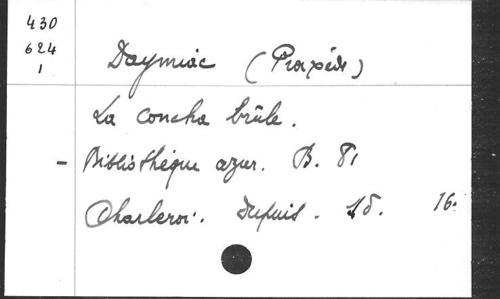 430
624
1
Daymiac (Praxède)
La concha brûle.
- Bibliothèque azur. B. 81
Charleroi. Dupuis. s d. 16.